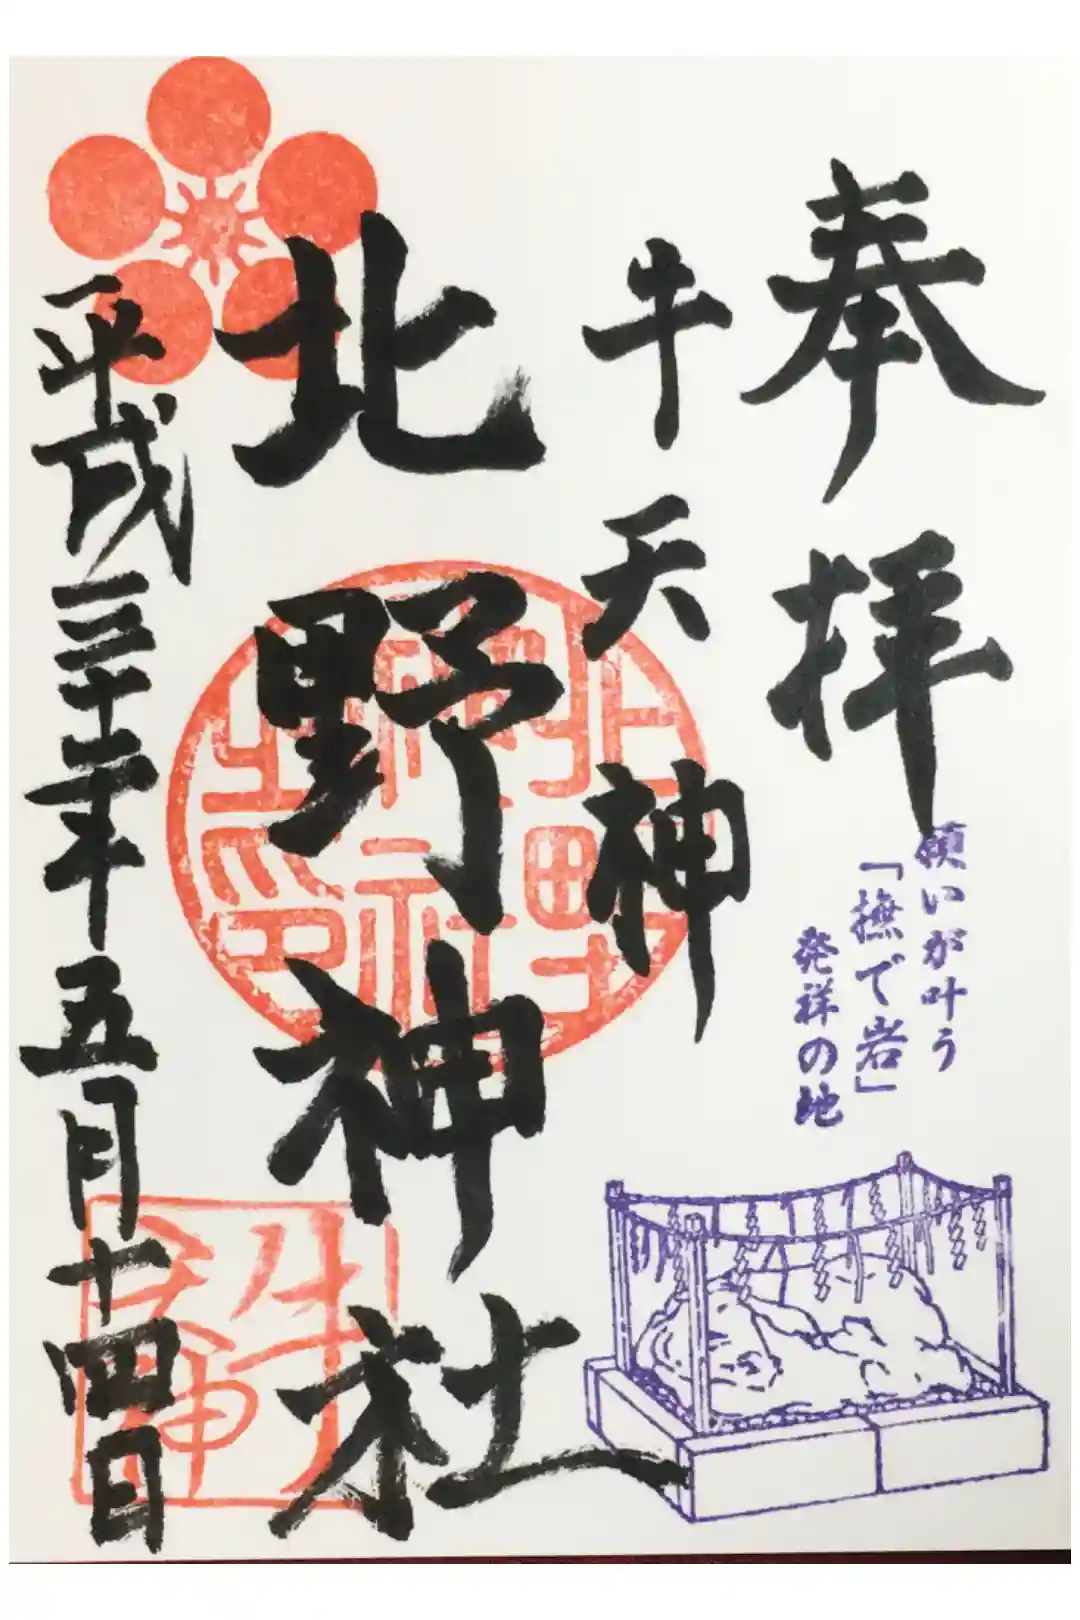 奉拝
願いが叶う
「撫で岩」
発祥の地
牛天神
北野神社
平成三十年五月十四日
北野神社
牛天神